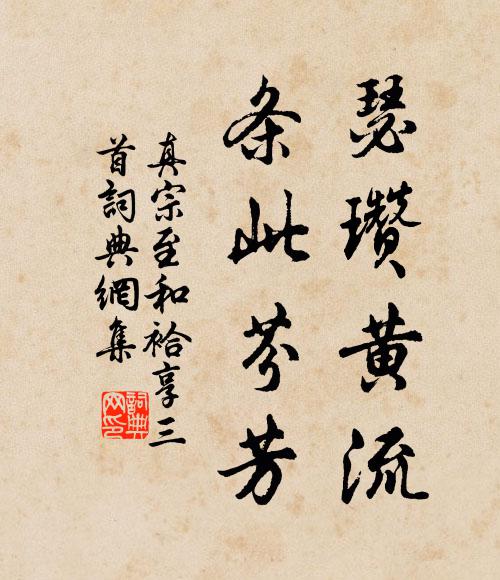 瑟瓚黄流
条此芬芳
真宗至和祫享三
首詞典網集
詞典
网印